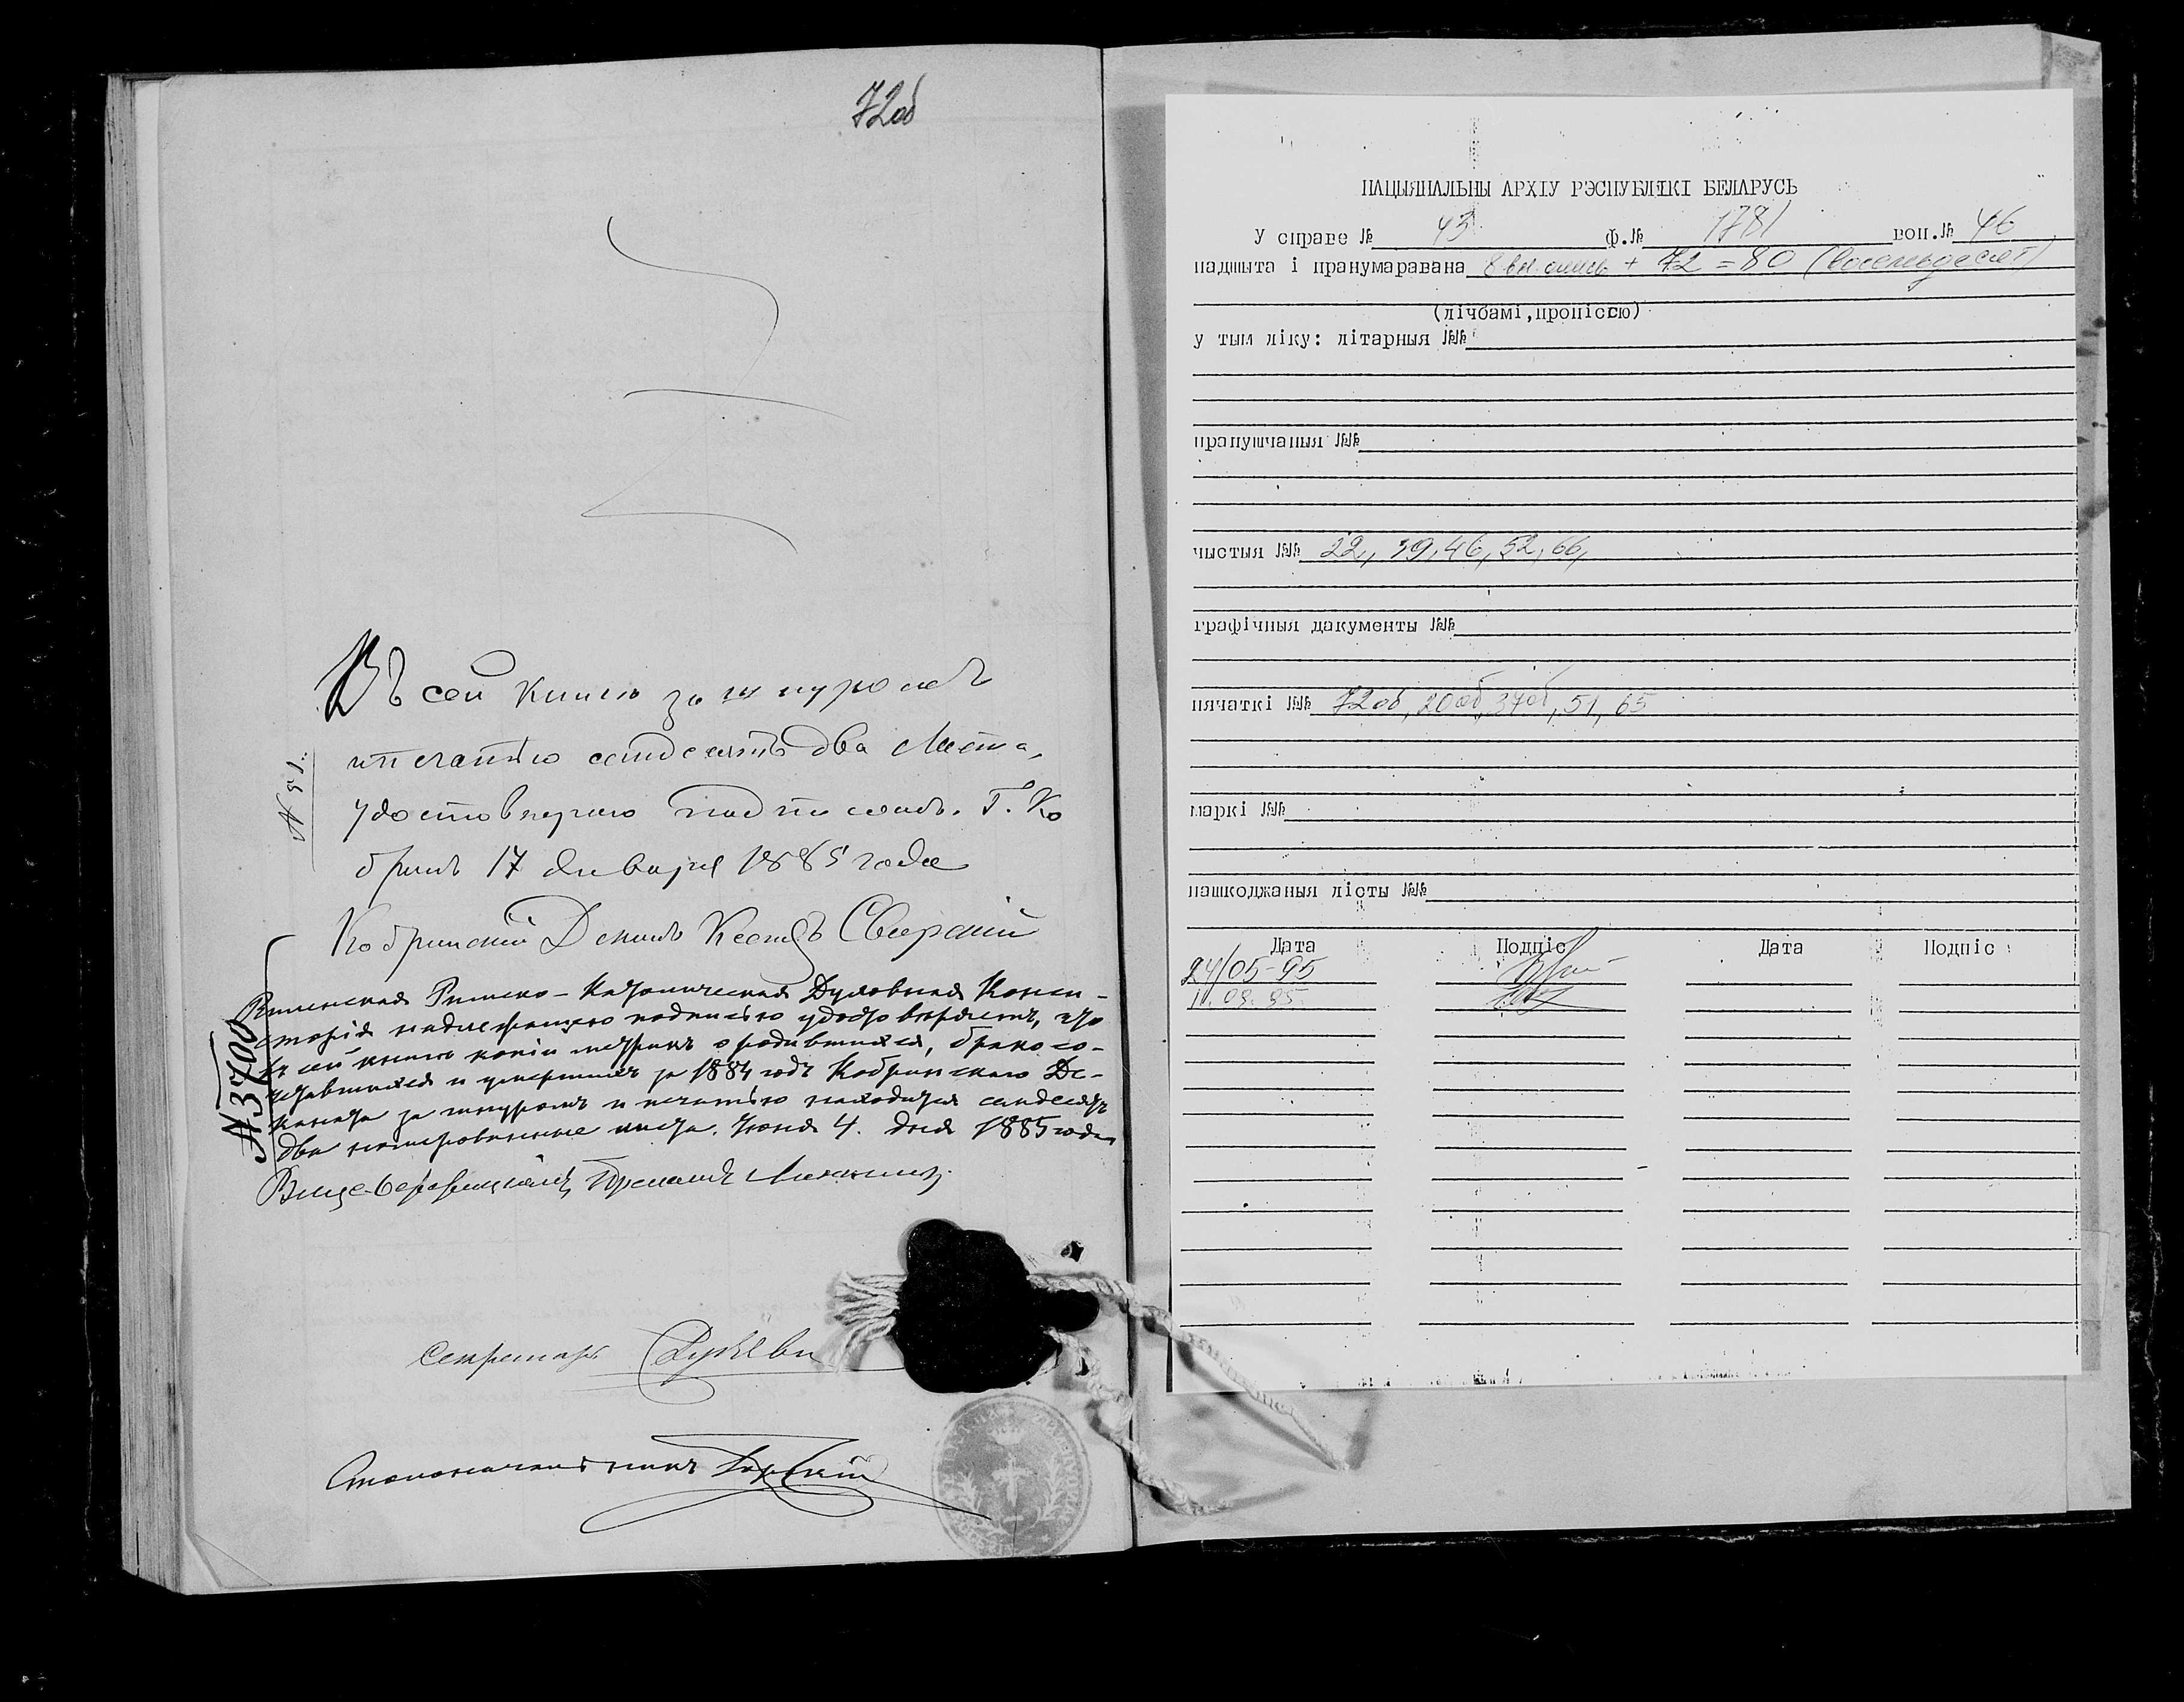 72об
Въ сей книгѣ за шнуромъ
и печатью семдесятъ два листа,
удостовѣряю подписомъ. Г. Ко
бринъ 17 Января 1885 года
Кобринскій Деканъ Ксендзъ
№ 51.
Виленская Римско-Католическая Духовная Конси-
сторія надлежащею подписью удостовѣряетъ, что
въ сей книгѣ копіи метрикъ о родившихся, бракосо-
четавшихся и умершихъ за 1884 годъ Кобринскаго Де-
каната за шнуромъ и печатью находится семдесятъ
два нумерованные листа. Іюня 4. дня 1885 года
№ 3700
Секретарь
Столоначальникъ
НАЦЫЯНАЛЬНЫ АРХІУ РЭСПУБЛІКІ БЕЛАРУСЬ
У справе № 43 ф.№ 1781 воп.№ 46
падшыта і пранумаравана 8 вн. опись + 72 = 80 (восемьдесят)
(лічбамі,пропіссю)
у тым ліку: літарныя №№
прапушчаныя №№
чыстыя №№ 22, 39, 46, 52, 66,
графічныя дакументы №№
пячаткі №№ 72об, 20об, 37об, 51, 65
маркі №№
пашкоджаныя лісты №№
Дата Подпіс Дата Подпіс
24/05-95
11.09.95